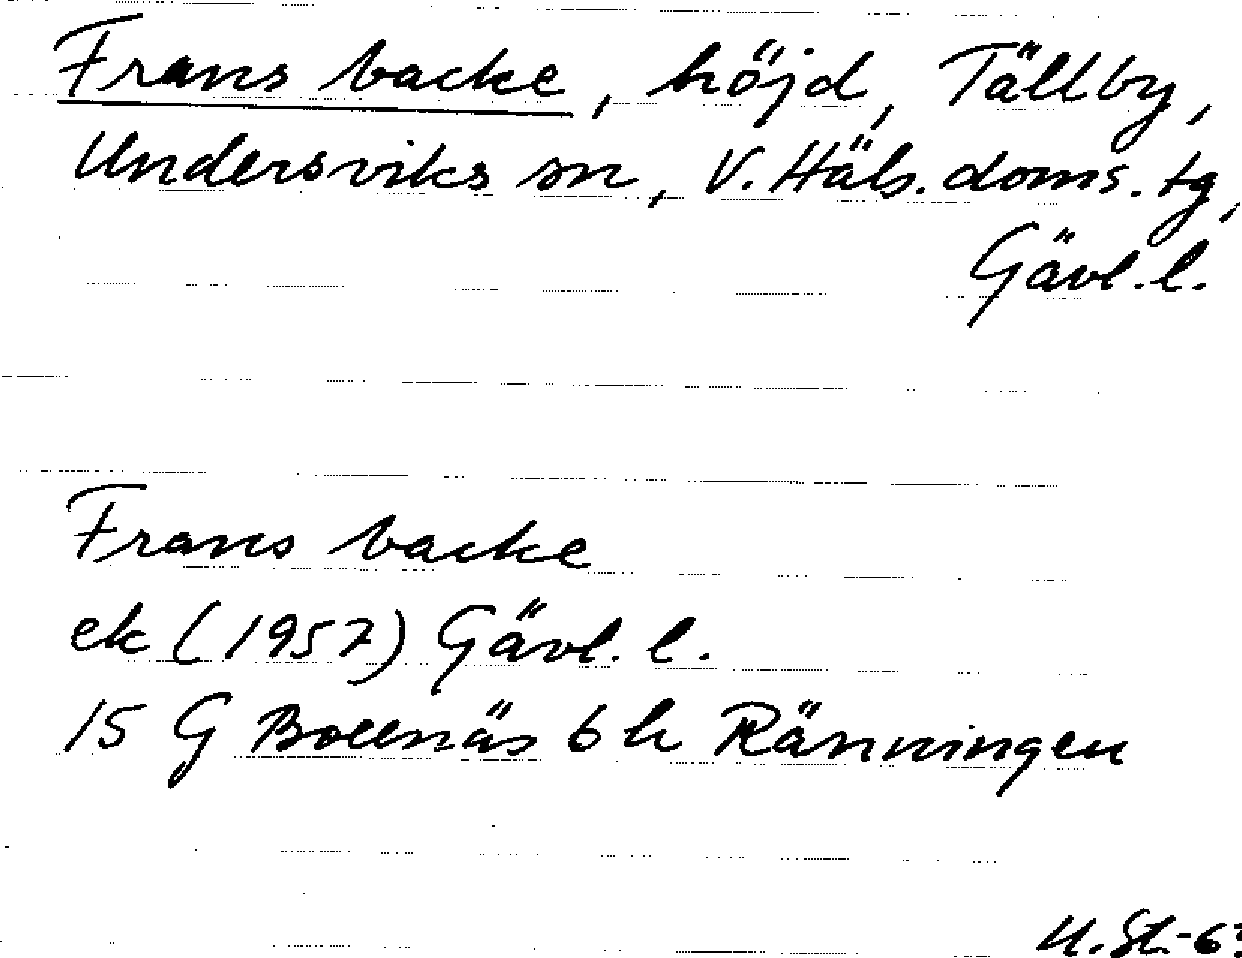 Frans backe, höjd, Tällby,
Undersviks sn, V. Häls. doms. tg,
Gävl. l.
Frans backe
ek (1957) Gävl. l.
15 G Bollnäs 6 h Ränningen